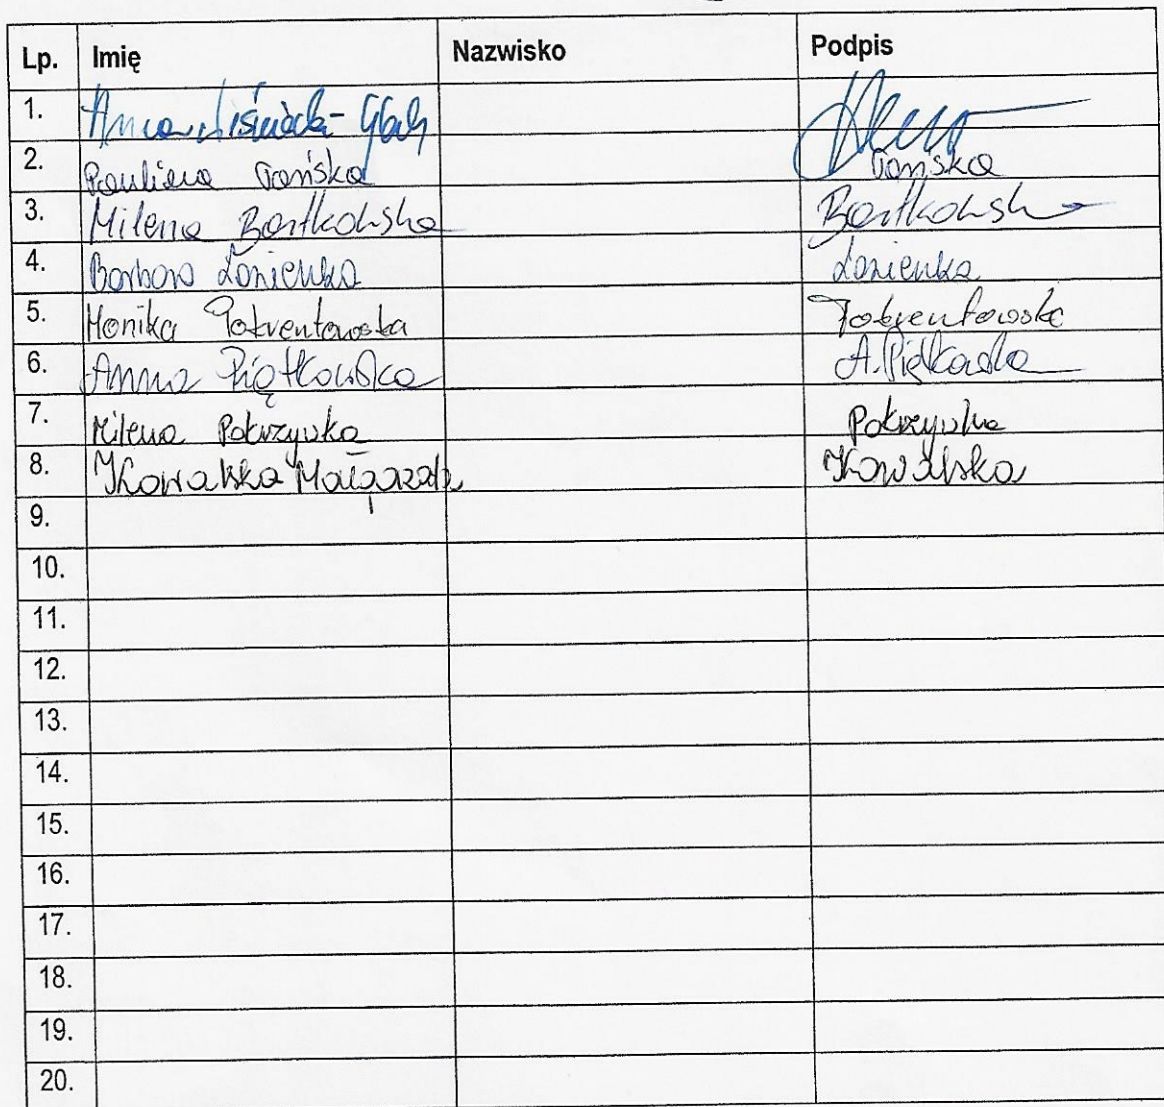 Lp. Imię Nazwisko Podpis
1. Anna
2. Paulina Tańska Tańska
3. Milena Bartkowska Bartkowska
4. Barbara Łazienka Łazienka
5. Monika
6. Anna Piątkowska A. Piątkowska
7. Milena Pokrzywka Pokrzywka
8. Kowalska Małgorzata Kowalska
9.
10.
11.
12.
13.
14.
15.
16.
17.
18.
19.
20.